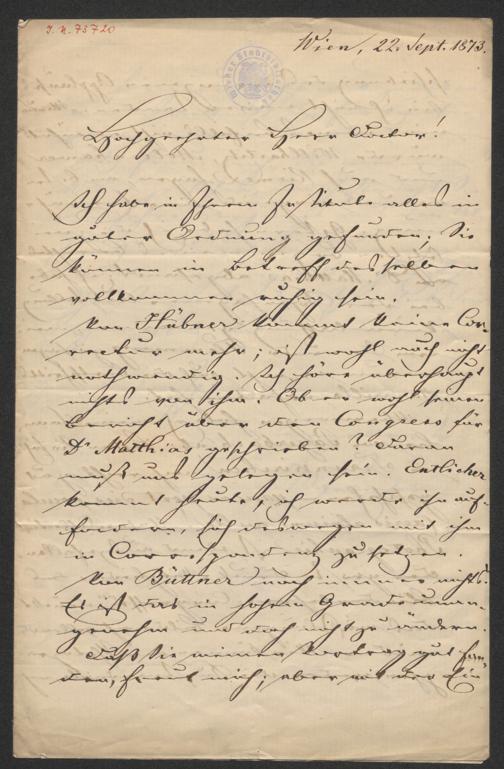 J.N. 73720
Wien, 22. Sept. 1873.
Hochgeehrter Herr Doctor!
Ich habe in Ihrem Institute alles in
guter Ordnung gefunden; Sie
können in Betreff desselben
vollkommen ruhig sein.
Von Hübner kommt keine Cor-
rectur mehr; ist wohl auch nicht
nothwendig. Ich höre überhaupt
nichts von ihm. Ob er wohl seinen
Bericht über den Congress für
Dr Matthias geschrieben? Daran
muß uns gelegen sein. Entlicher
kommt heute, ich werde ihn auf-
fordern, sich deswegen mit ihm
in Correspondenz zu setzen.
Von Büttner noch immer nichts.
Es ist das in hohem Grade unan-
genehm und doch nicht zu ändern.
Daß Sie meinen Vortrag gut fan-
den, freut mich; aber mit der Ein